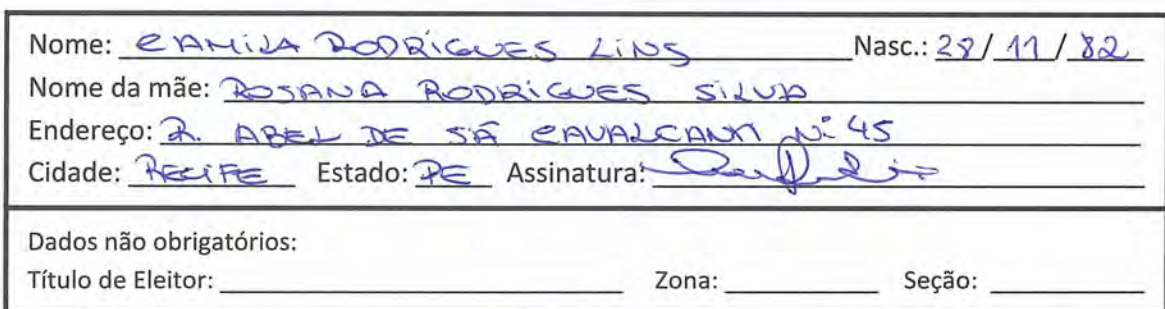 Nome: CAMILA RODRIGUES LINS Nasc.: 28/11/82
Nome da mãe: ROSANA RODRIGUES SILVA
Endereço: R. ABEL DE SÁ CAVALCANTI Nº 45
Cidade: RECIFE Estado: PE Assinatura:
Dados não obrigatórios:
Título de Eleitor: Zona: Seção: